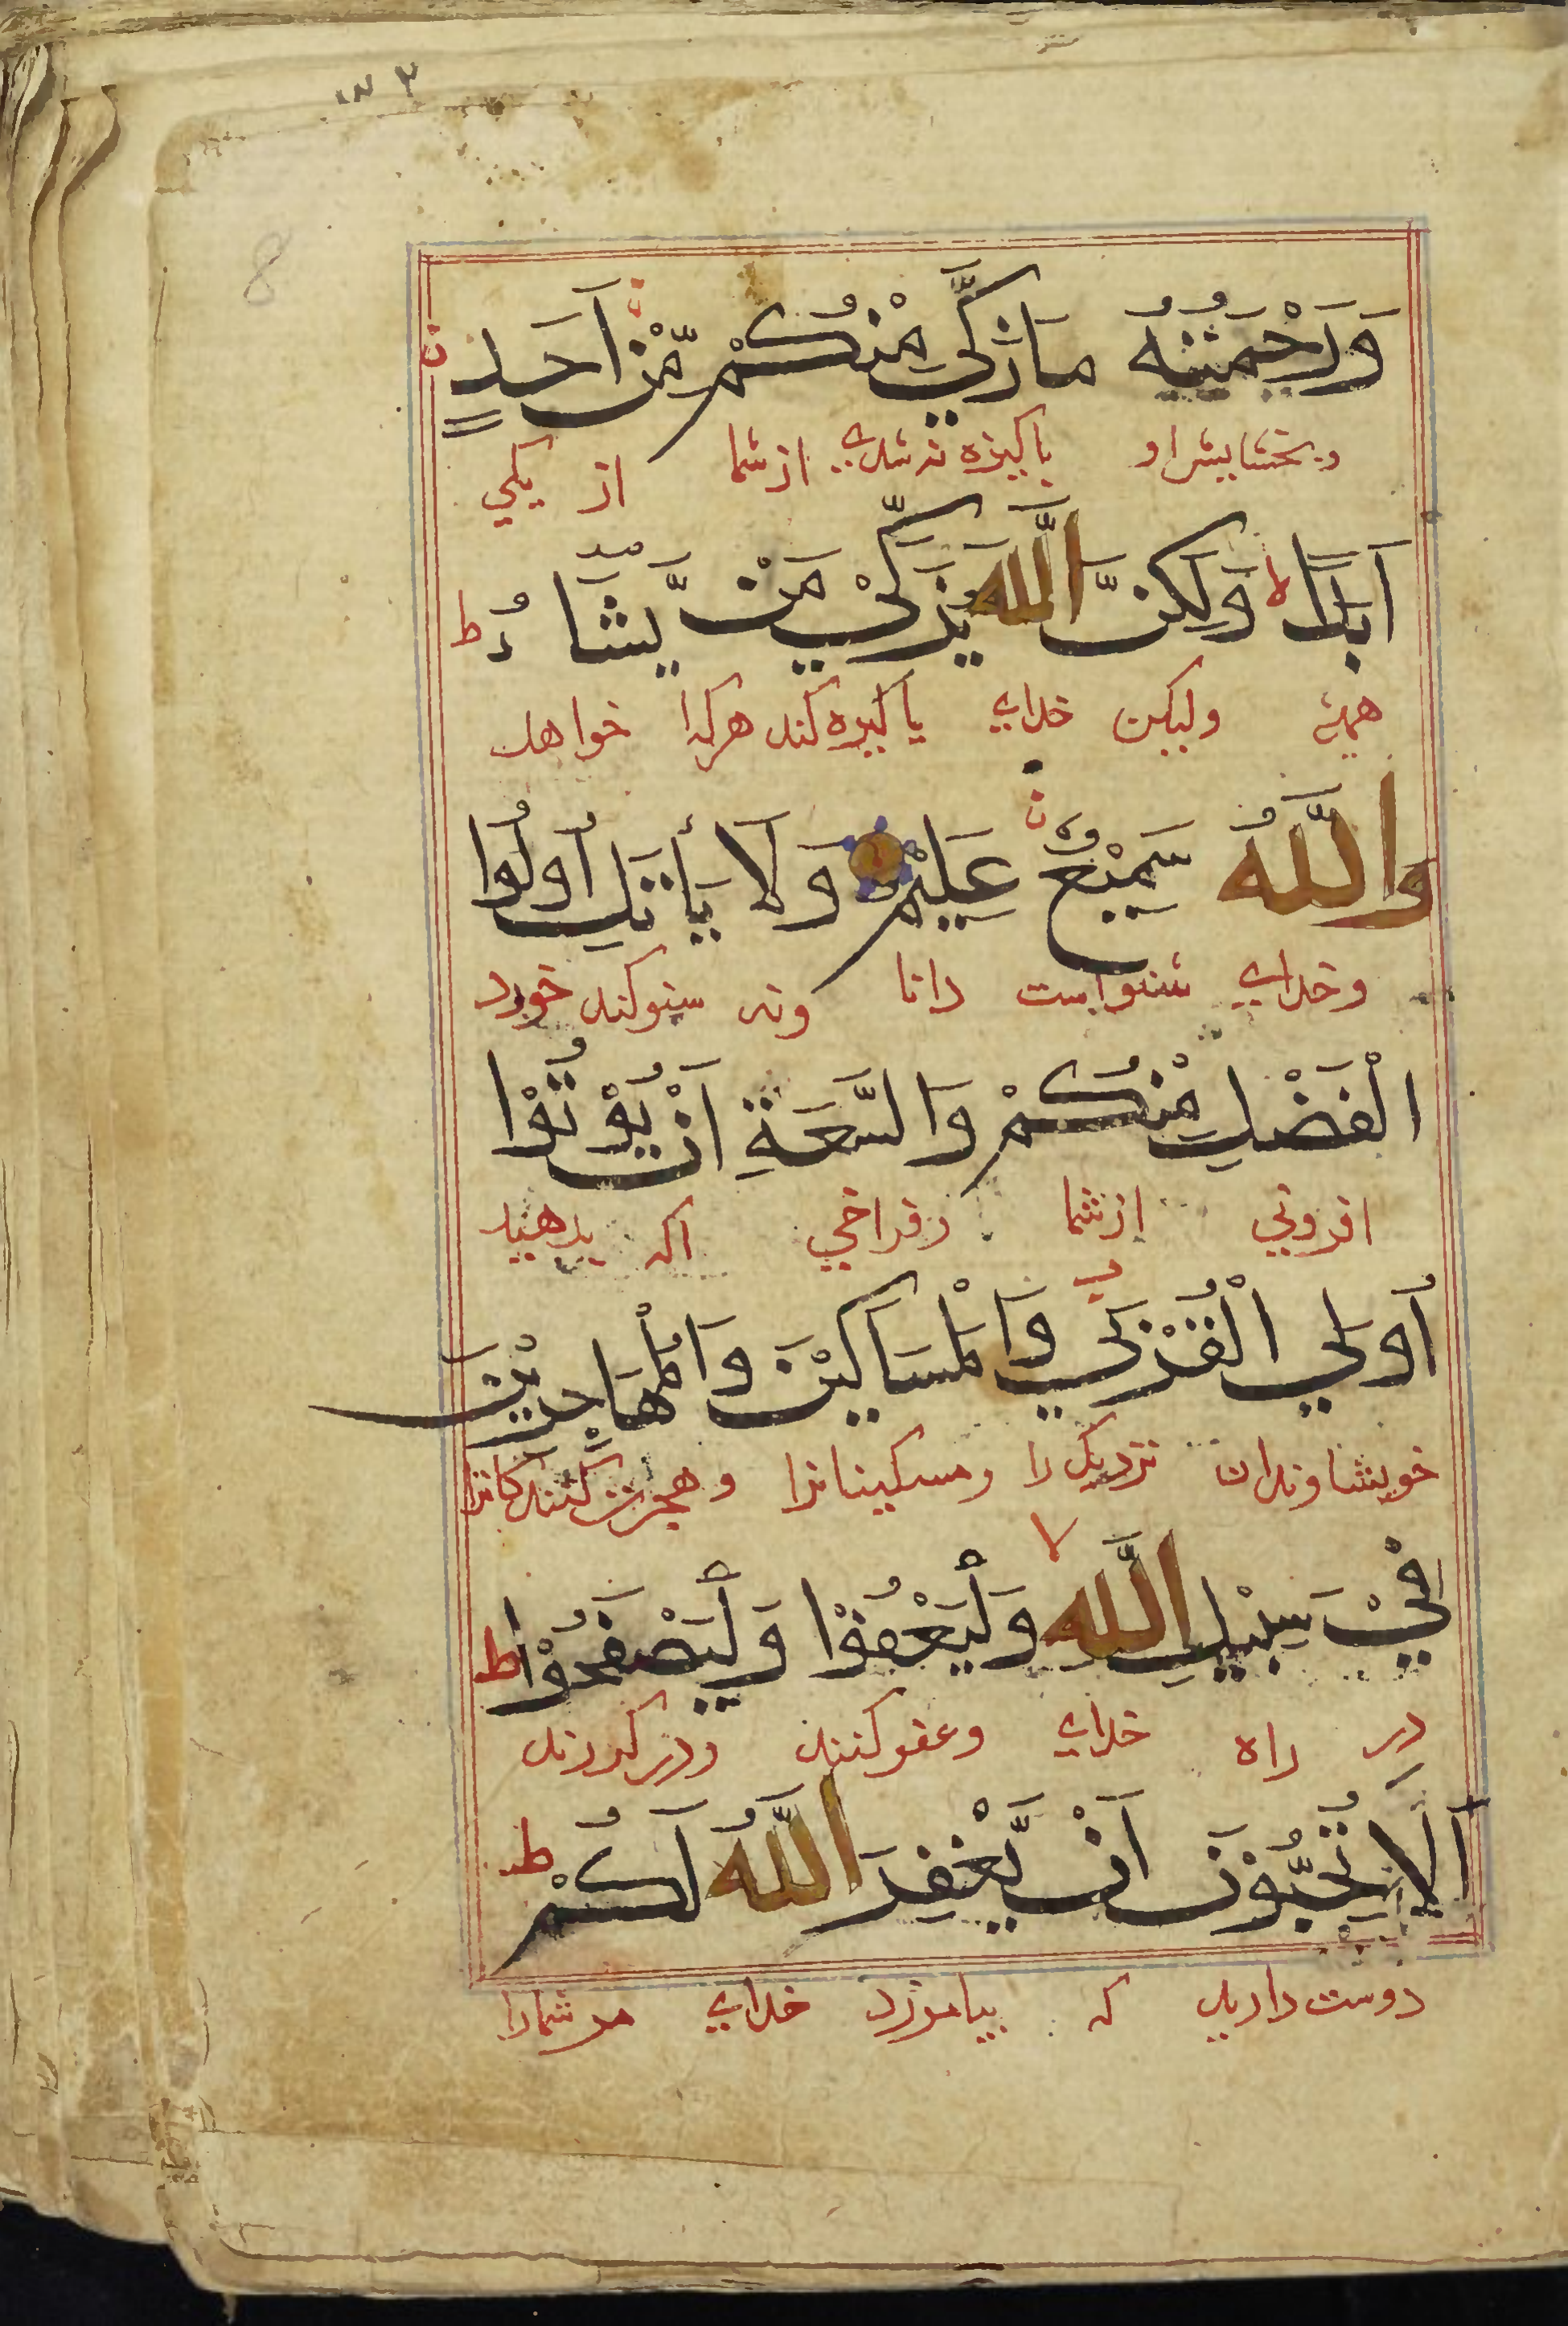 وَرَحْمَتُهُ مَا زَكٰي مِنْكُمْ مِّنْ اَحَدٍ
وبخشایش او پاکیزه نه شدی از شما از یکی
اَبَدًا لا وَلٰكِنَّ اللّٰهَ يُزَكِّيْ مَنْ يَّشَآءُ ط
همیشه ولیکن خدای پاکیزه کند هر کرا خواهد
وَاللّٰهُ سَمِيْعٌ عَلِيْمٌ وَلَا يَأْتَلِ اُولُوا
وخدای شنواست دانا ونه سوکند خورد
الْفَضْلِ مِنْكُمْ وَالسَّعَةِ اَنْ يُؤْتُوْا
افزونی از شما وفراخی اکه بدهند
اُولِي الْقُرْبٰي وَالْمَسَاكِيْنَ وَالْمُهَاجِرِيْنَ
خویشاوندان نزدیک را ومسکینانرا وهجرت کنندکانرا
فِيْ سَبِيْلِ اللّٰهِ لا وَلْيَعْفُوْا وَلْيَصْفَحُوْا ط
در راه خدای وعفو کنند ودر کذرند
اَلَا تُحِبُّوْنَ اَنْ يَّغْفِرَ اللّٰهُ لَكُمْ ط
دوست دارید که بیامرزد خدای مر شمارا
8